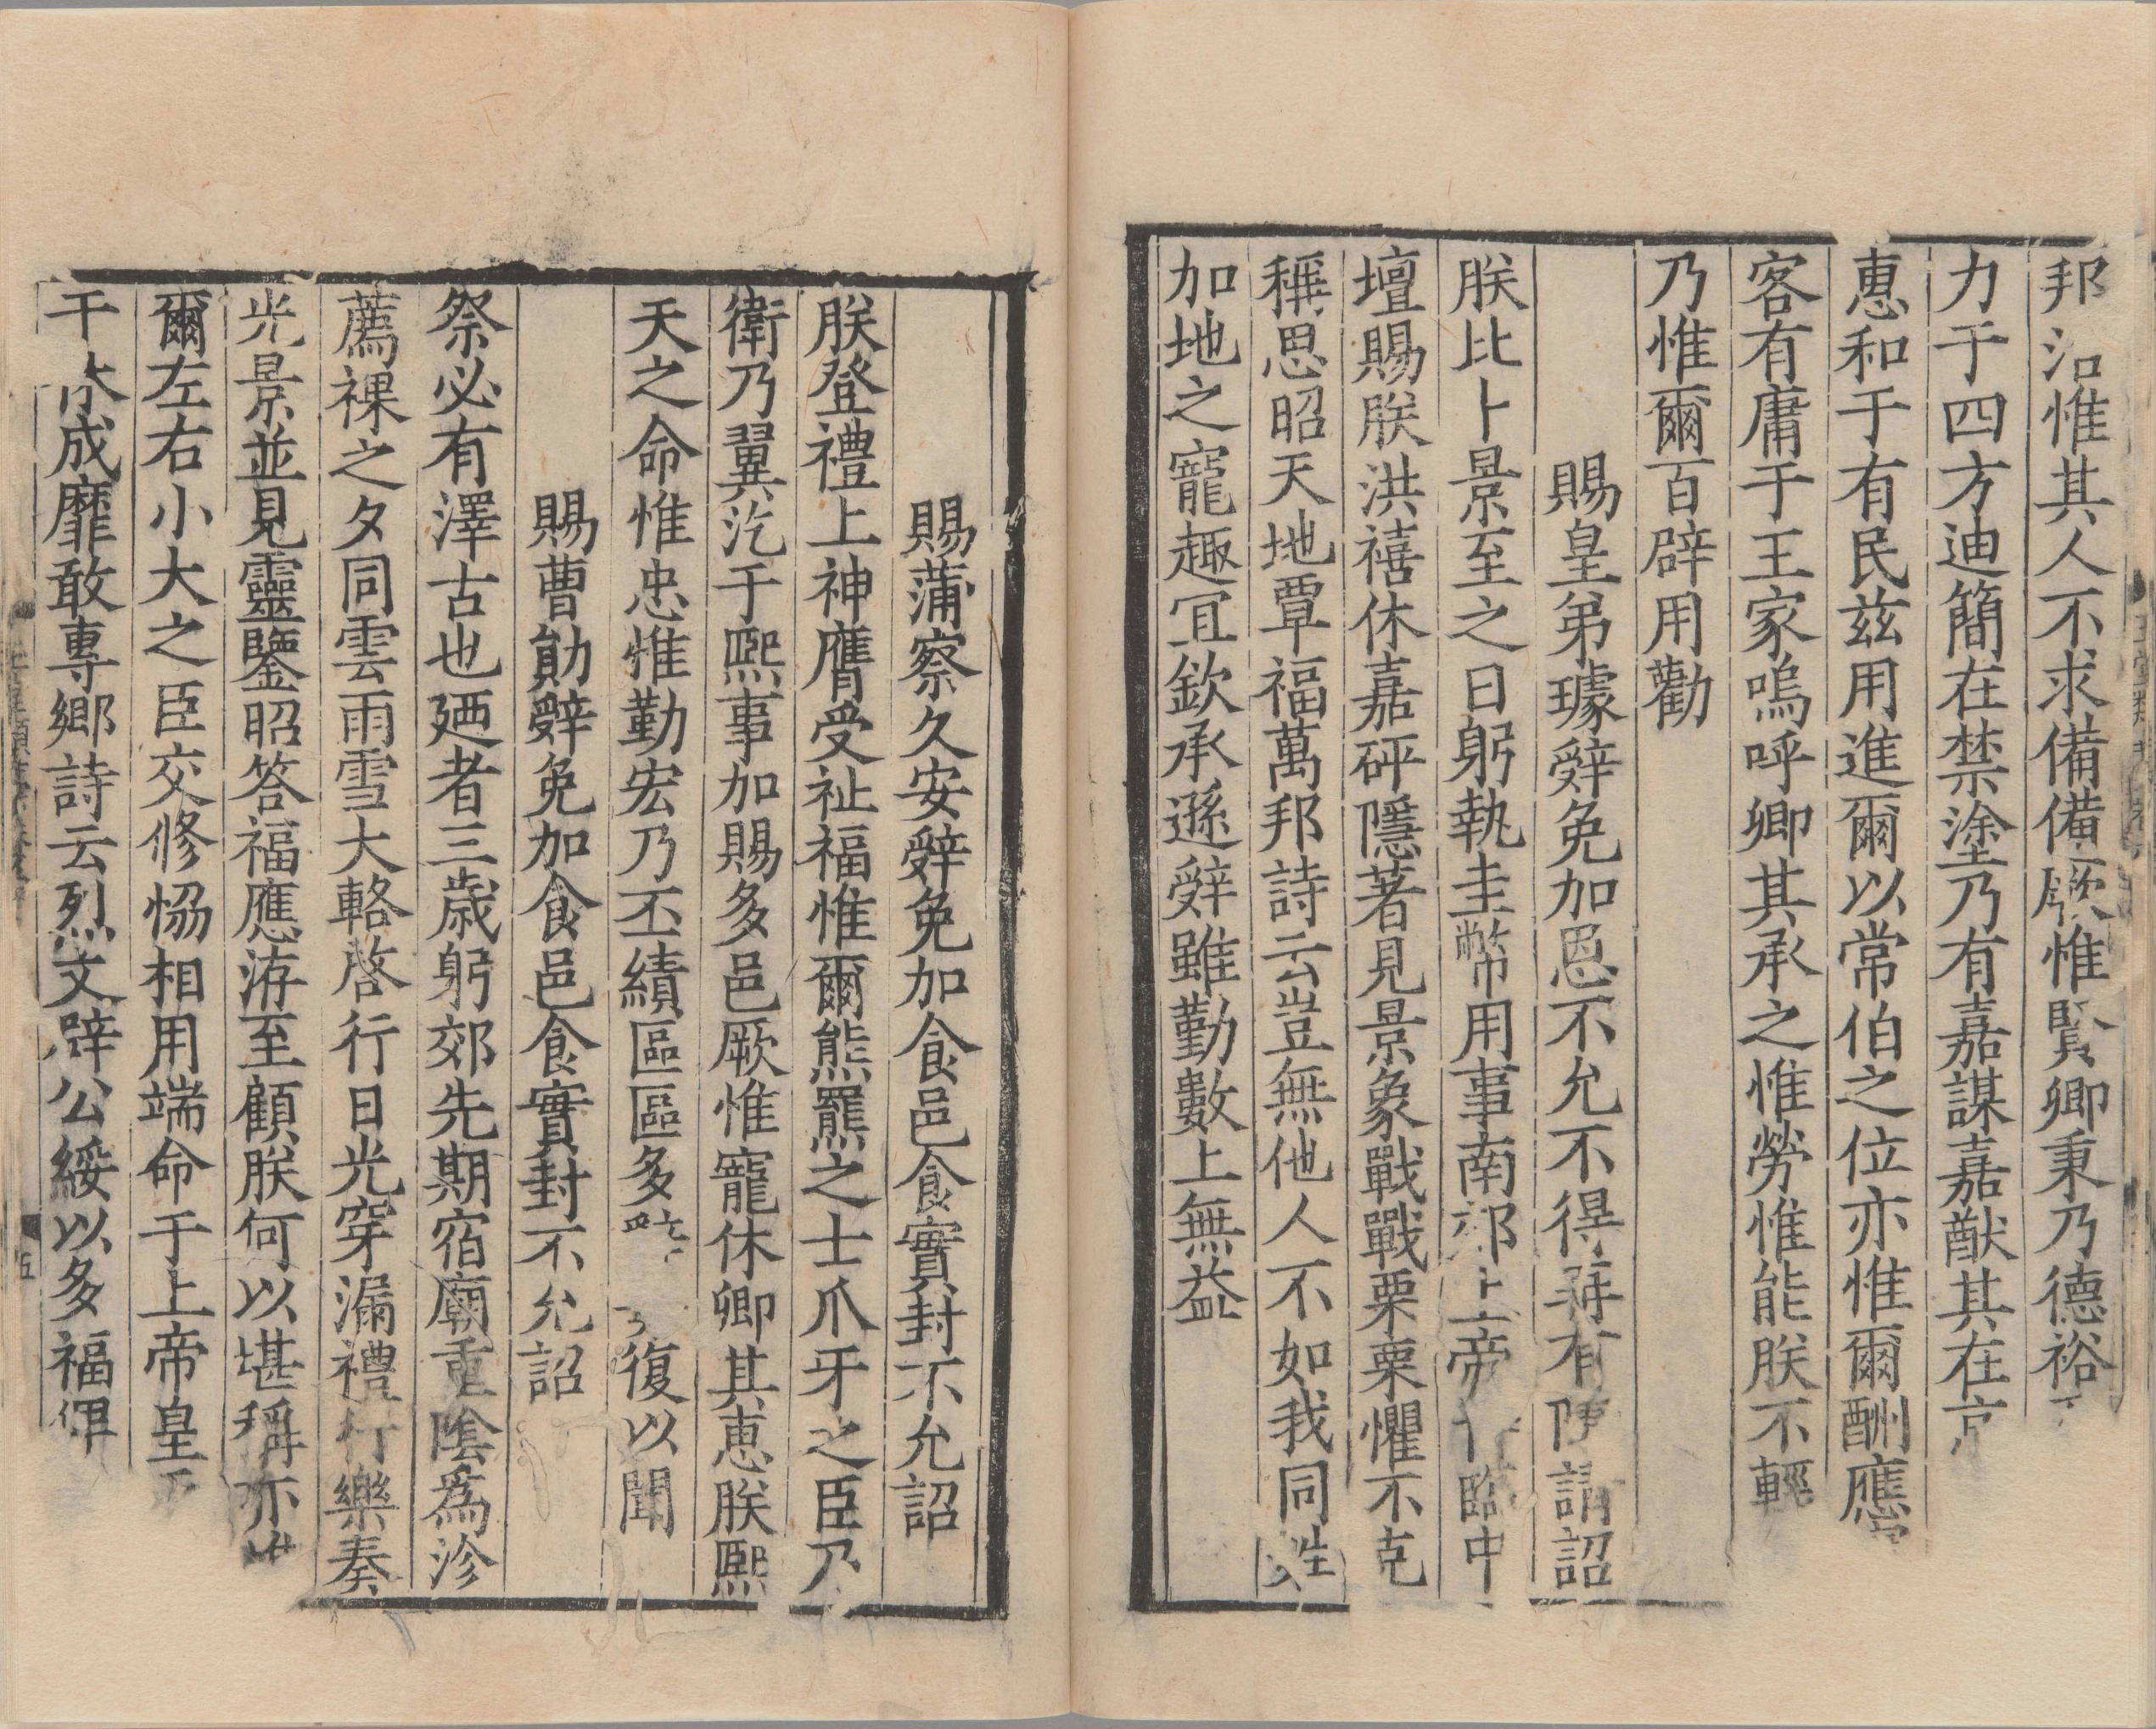 邦治惟其人不求備備厥惟賢卿秉乃德裕
力于四方迪簡在禁塗乃有嘉謀嘉猷其在京
惠和于有民茲用進爾以常伯之位亦惟爾酬應
客有庸于王家嗚呼卿其承之惟勞惟能朕不輕
乃惟爾百辟用勸
賜皇弟璩辭免加恩不允不得再有陳請詔
朕比卜景至之日躬執圭幣用事南郊上帝臨中
壇賜朕洪禧休嘉砰隱著見景象戰戰栗栗懼不克
稱思昭天地覃福萬邦詩云豈無他人不如我同姓
加地之寵趣冝欽承遜辭雖勤數上無益
賜蒲察久安辭免加食邑食實封不允詔
朕登禮上神膺受祉福惟爾熊羆之士爪牙之臣乃
衛乃翼汔于熙事加賜多邑厥惟寵休卿其惠朕熙
天之命惟忠惟勤宏乃丕績區區多 復以聞
賜曹勛辭免加食邑食實封不允詔
祭必有澤古也廼者三歲躬郊先期宿廟重陰爲沴
薦祼之夕同雲雨雪大輅啓行日光穿漏禮行樂奏
光景並見靈鑒昭答福應洊至顧朕何以堪稱亦惟
爾左右小大之臣交修恊相用端命于上帝皇
干 成靡敢專鄉詩云烈文辟公綏以多福俾